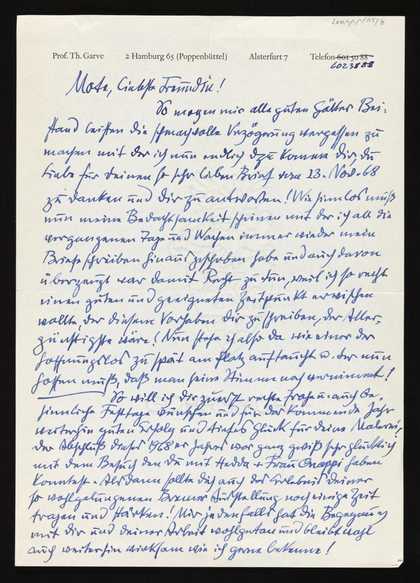 Prof. Th. Garve 2 Hamburg 65 (Poppenbüttel) Alsterfurt 7 Telefon 601 50 88
6023888
Mate, liebste Freundin!
So mögen mir alle guten Götter Bei-
stand leisten die schmachvolle Verzögerung vergessen zu
machen mit der ich nun endlich dazu komme dir, du
Liebe für deinen so sehr lieben Brief vom 13. Nov. 68
zu danken und dir zu antworten! Wie sinnlos muß
nun meine Bedachtsamkeit scheinen mit der ich all die
vergangenen Tage und Wochen immer wieder mein
Briefe schreiben hinaus geschoben habe und auch davon
überzeugt war damit Recht zu tun, weil ich so recht
einen guten und geeigneten Zeitpunkt erwischen
wollte, der diesem Vorhaben dir zu schreiben, der Aller-
günstigste wäre! Nun stehe ich also da wie einer der
hoffnungslos zu spät am Platz auftaucht u. der nun
hoffen muß, daß man seine Stimme noch vernimmt!
So will ich dir zuerst recht frohe und be-
sinnliche Festtage wünschen und für das kommende Jahr
weiterhin guten Erfolg und tiefes Glück für deine Malerei.
der Abschluß dieses 1968er Jahres war ganz gewiß sehr glücklich
mit dem Besuch den du mit Hedda + Frau haben
konntest. Alsdann sollte dich auch das Erlebnis deiner
so wohlgelungenen Bremer Ausstellung noch einige Zeit
tragen und stärken! Mir jedenfalls hat die Begegnung
mit dir und deiner Arbeit wohlgetan und bleibt
auch weiterhin wirksam wie ich gerne bekenne!